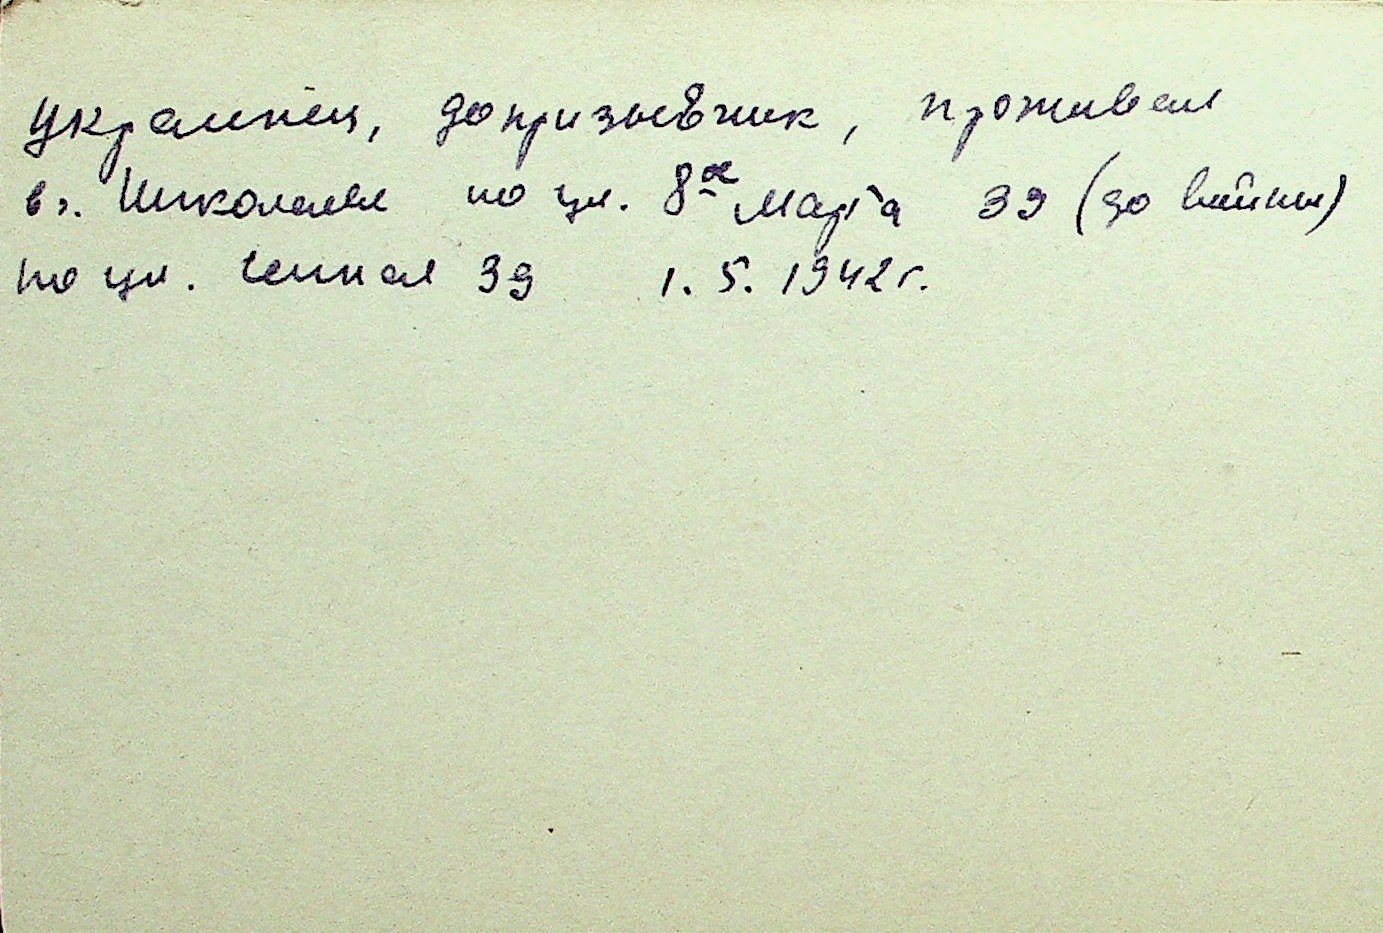 украинец, допризывчик, проживал
в г. Николаеве по ул. 8ое Марта 39 (до войны)
по ул. Сенная 39 1. 5. 1942 г.